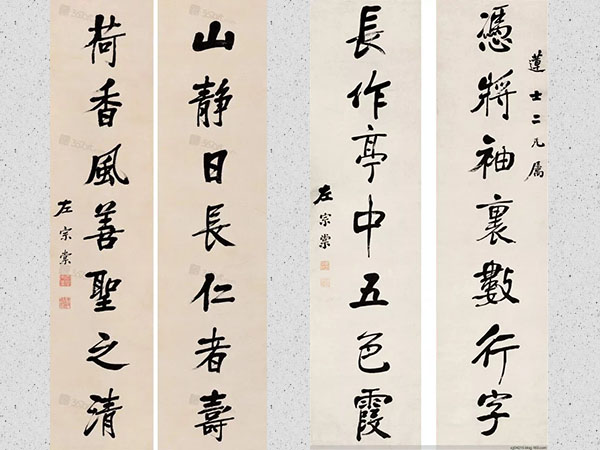 蓮士二兄属
憑將袖裏數行字
長作亭中五色霞
左宗棠
山靜日長仁者壽
荷香風善聖之清
左宗棠